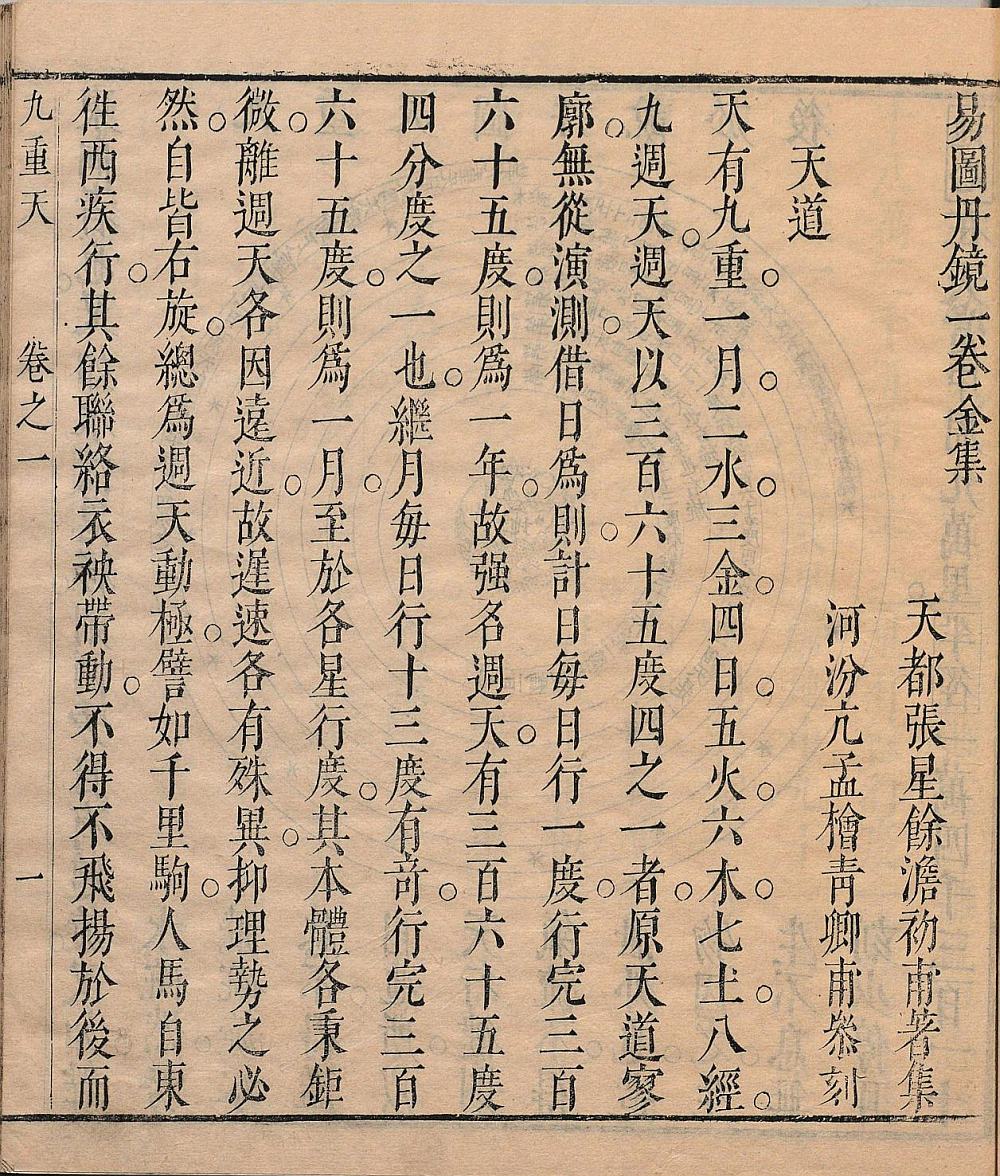 易圖丹鏡一卷金集
天都張星餘澹初甫著集
河汾亢孟檜靑卿甫恭刻
天道
天有九重一月二水三金四日五火六木七土八經
九週天週天以三百六十五度四之一者原天道寥
廓無從演測借日爲則計日每日行一度行完三百
六十五度則爲一年故强名週天有三百六十五度
四分度之一也繼月每日行十三度有竒行完三百
六十五度則爲一月至於各星行度其本體各秉鉅
微離週天各因遠近故遲速各有殊異抑理勢之必
然自皆右旋總爲週天動極譬如千里駒人馬自東
徃西疾行其餘聯絡衣袂帶動不得不飛揚於後而
九重天 卷之一 一